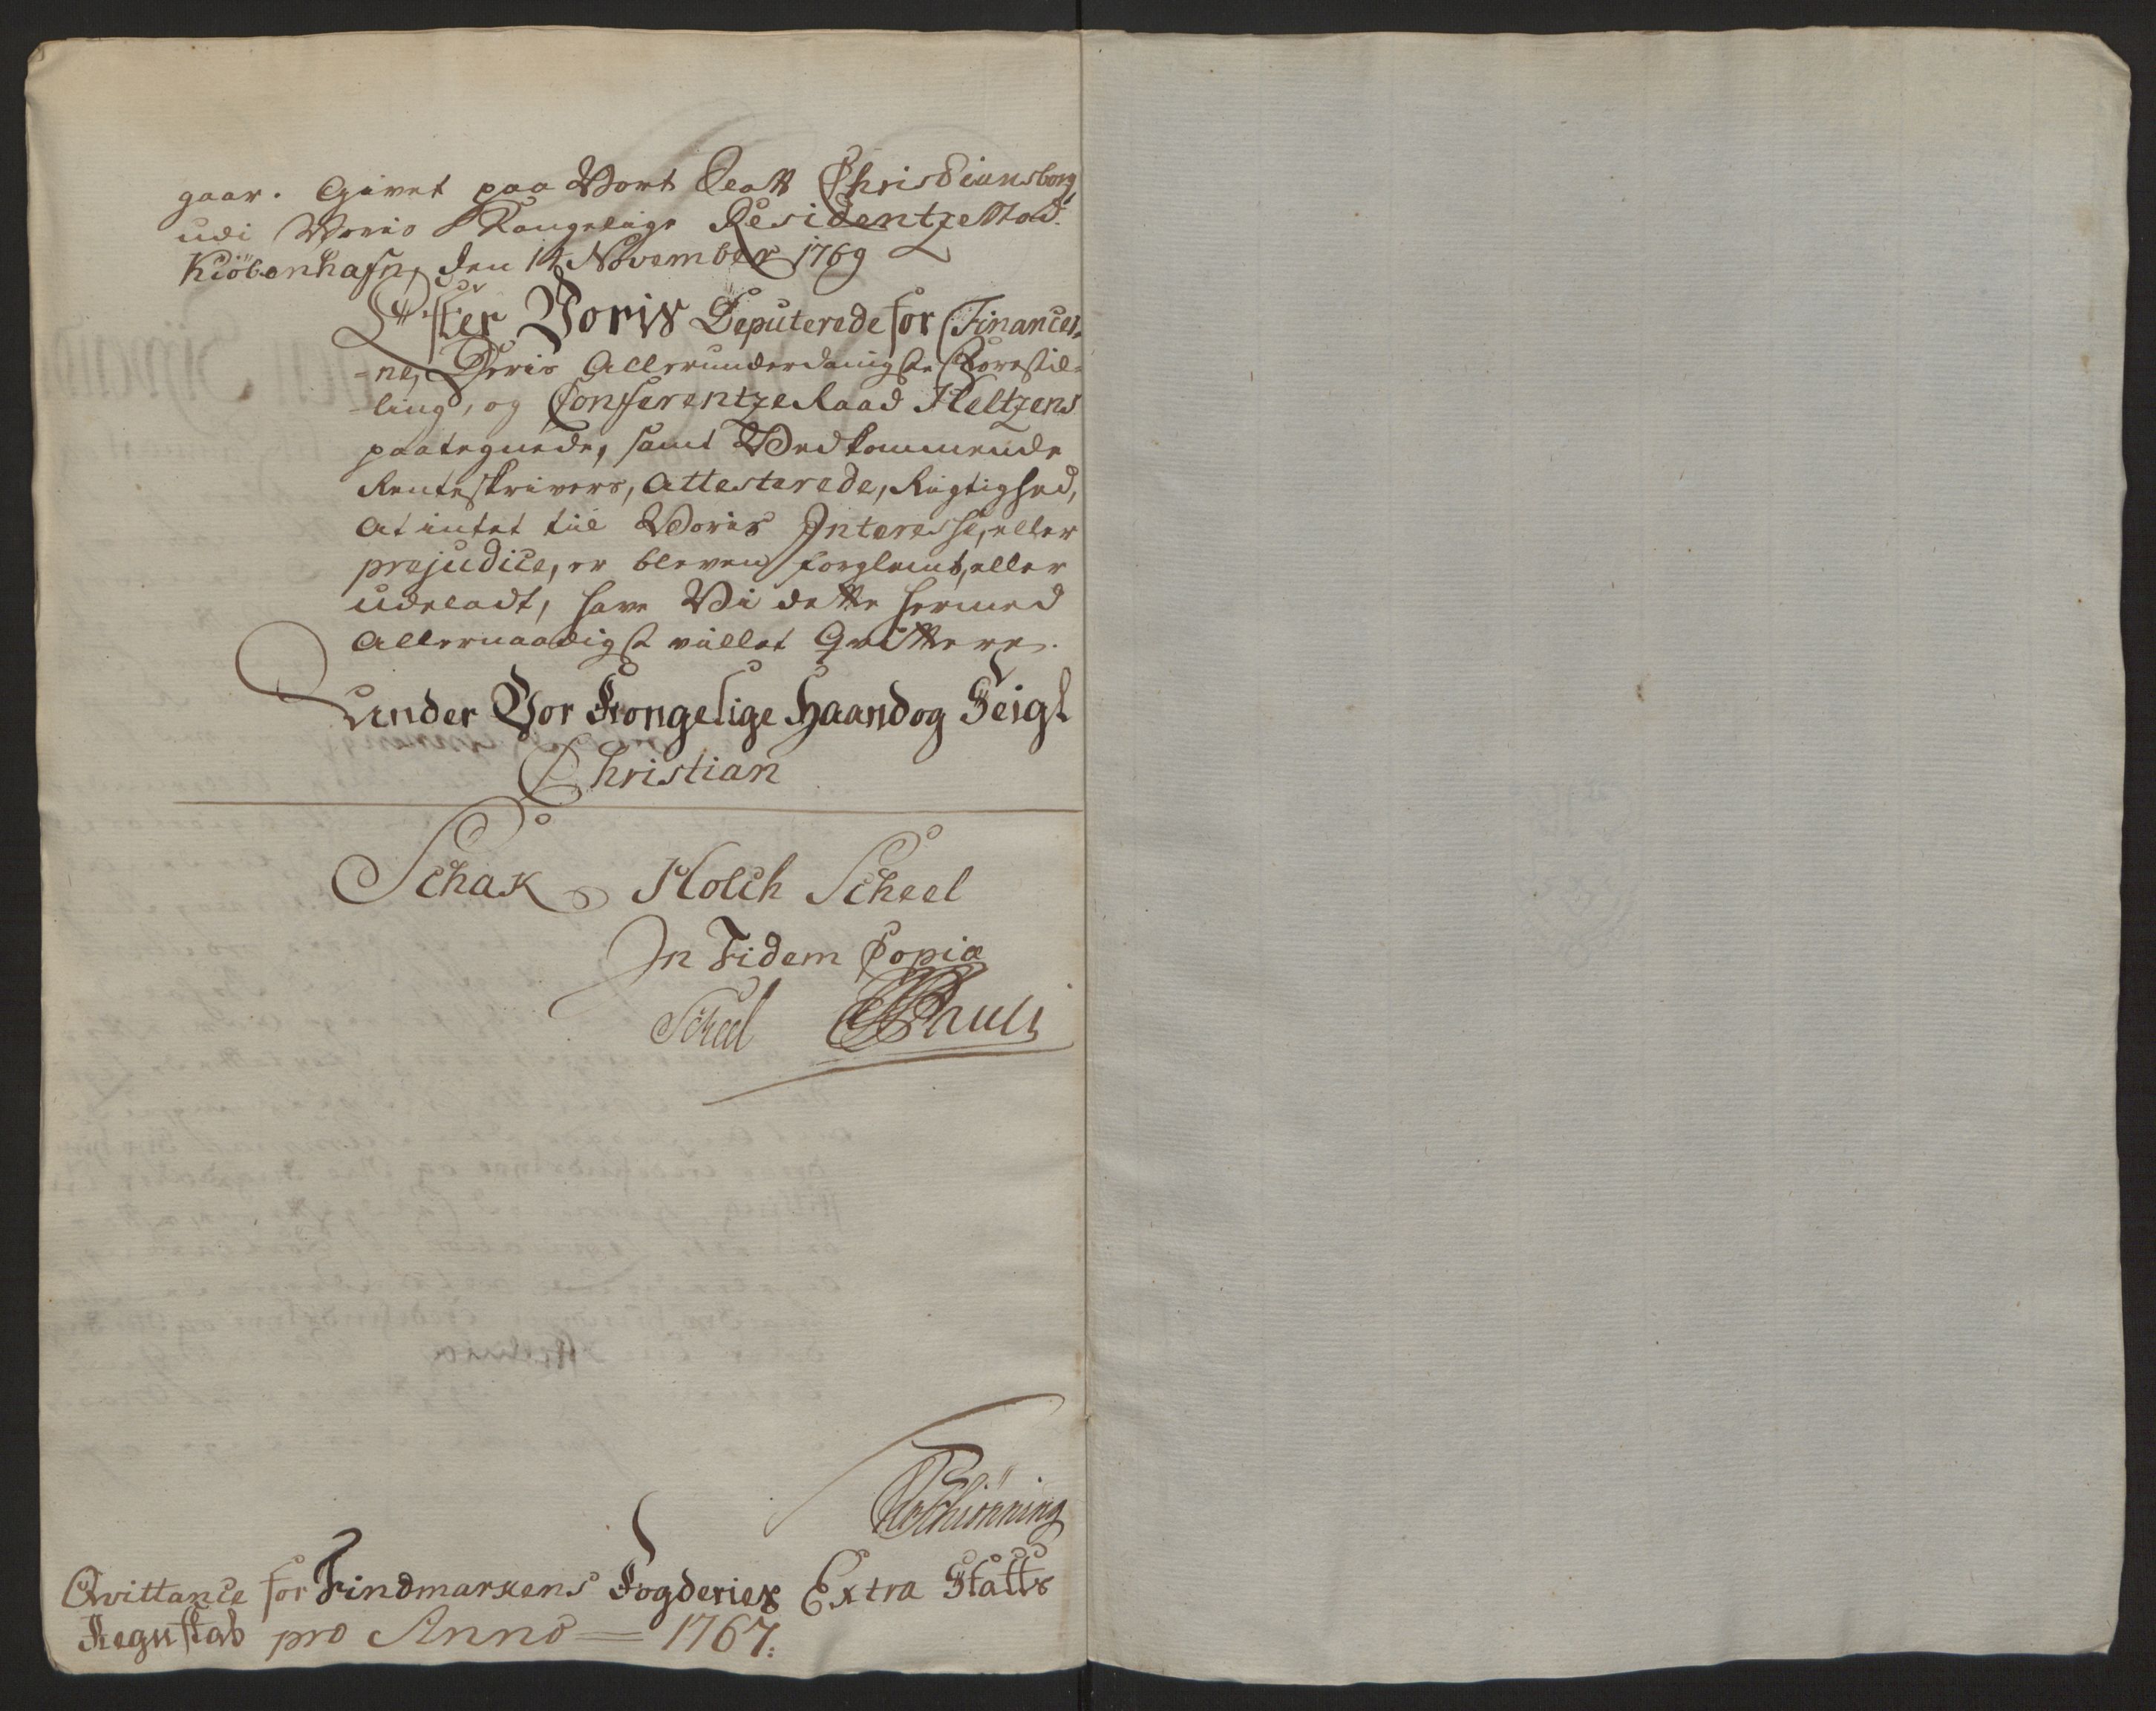 gaar. Givet paa Vort Slott Christiansborg
udi Voris Kongelige Residentze Stad
Kiöbenhafn, den 14 November 1769
Efter Voris Deputerede for Financer-
-ne, Deris Allerunderdanigste Forestil-
-ling, og Conferentze Raad Heltzens
paategnede, samt Vedkommende
Renteskrivers, Attesterede, Rigtighed,
At intet til Voris Interesse, eller
prejudice, er bleven forglemt, eller
udeladt, have Vi dette hermed
Allernaadigst villet Qvittere.
Under Vor Kongelige Haand og Seigl
Christian
Schak Holck Scheel
In Fidem Copiæ
Scheel Pauli
Schiönning
Qvittance for Findmarkens Fogderies Extra Skatts
Regnskab pro Anno = 1767.